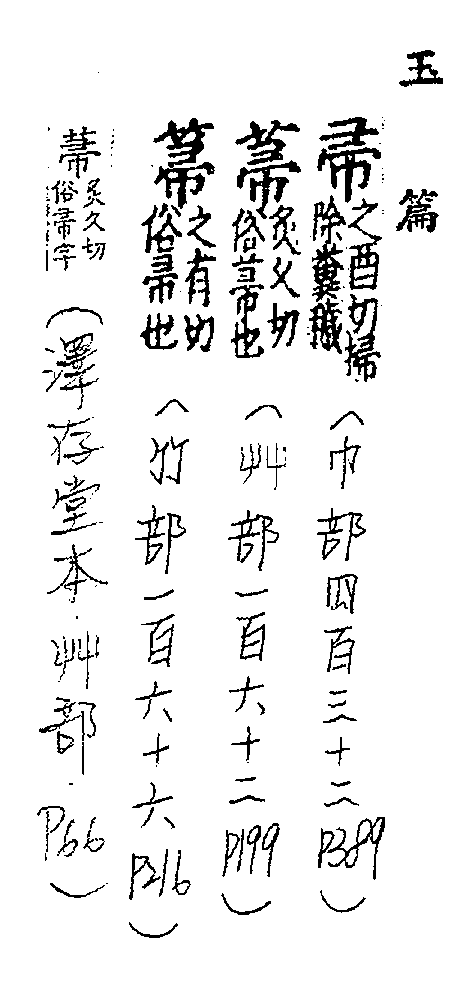 玉篇
帚之酉切掃除糞穢(巾部四百三十二P389)
菷炙久切俗帚也(艸部一百六十二P199)
箒之有切俗帚也(竹部一百六十六P216)
菷炙久切俗帚字(澤存堂本.艸部.P66)